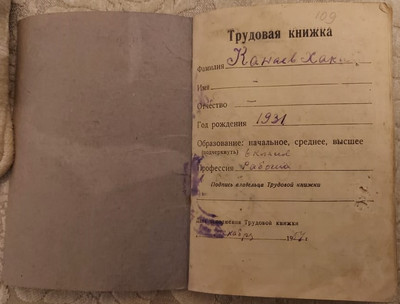 109
Трудовая книжка
Фамилия Канаев Хак
Имя –
Отчество –
Год рождения 1931
Образование: начальное, среднее, высшее
(подчеркнуть)
Профессия рабочий
Подпись владельца Трудовой книжки
Трудовой книжки
19 г.